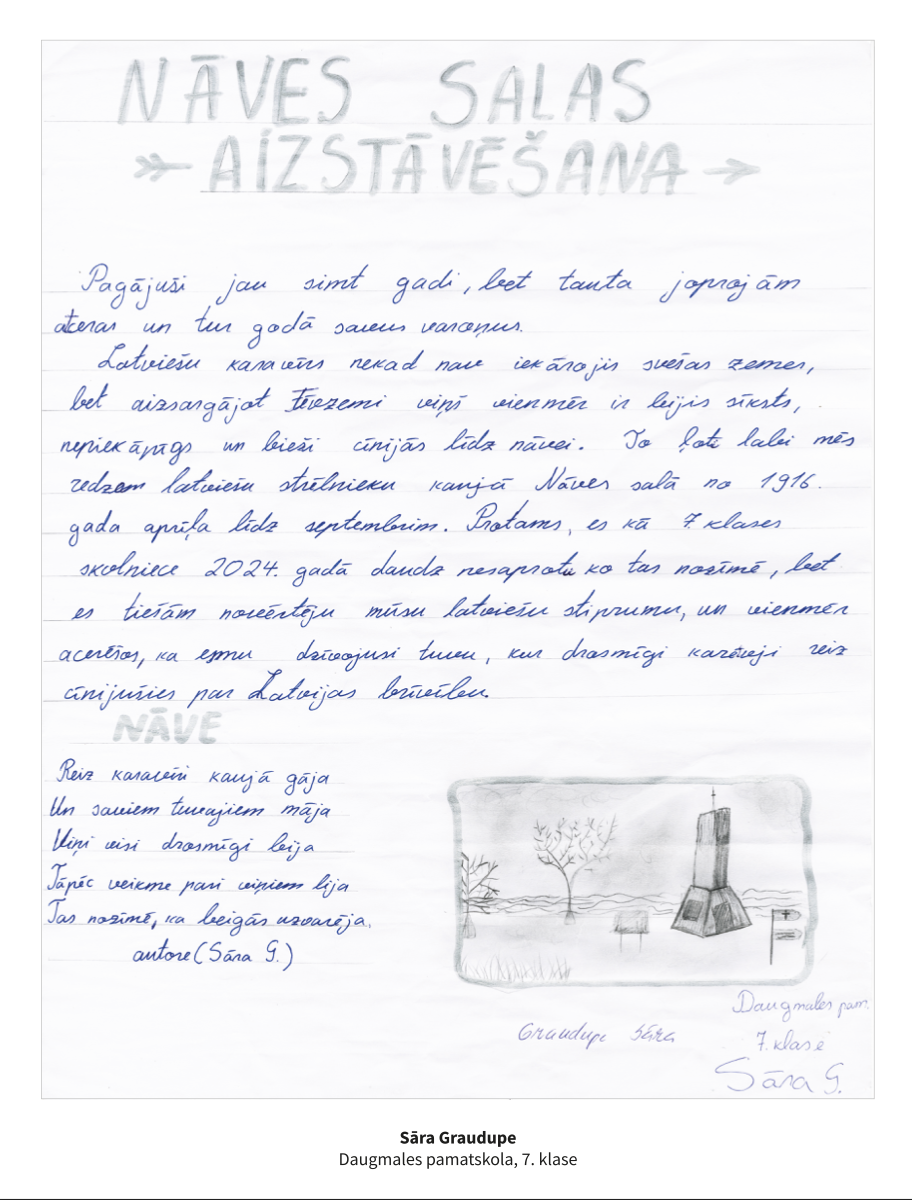 NĀVES SALAS
AIZSTĀVĒŠANA
Pagājuši jau simt gadi, bet tauta joprojām
atceras un tur godā savus varoņus.
Latviešu karavīrs nekad nav iekārojis svešas zemes,
bet aizsargājot Tēvzemi viņš vienmēr ir bijis sīksts,
nepiekāpīgs un bieži cīnijās līdz nāvei. To ļoti labi mēs
redzam latviešu strēlnieku kaujā Nāves salā no 1916.
gada aprīļa līdz septembrim. Protams, es kā 7 klases
skolniece 2024. gadā daudz nesaprotu ko tas nozīmē, bet
es tiešām novērtēju mūsu latviešu stiprumu, un vienmēr
acerēšos, ka esmu dzīvojusi tuvu, kur drosmīgi karēvji reiz
cīnijušies par Latvijas brīvību.
NĀVE
Reiz karavīri kaujā gāja
Un saviem tuvajiem māja
Viņi visi drosmīgi bija
Tāpēc veiksme pari viņiem lija
Tas nozīmē, ka beigās uzvarēja.
autore (Sāra G.)
Daugmales pam.
Graudupe Sāra
7. klase
Sāra G.
Sāra Graudupe
Daugmales pamatskola, 7. klase